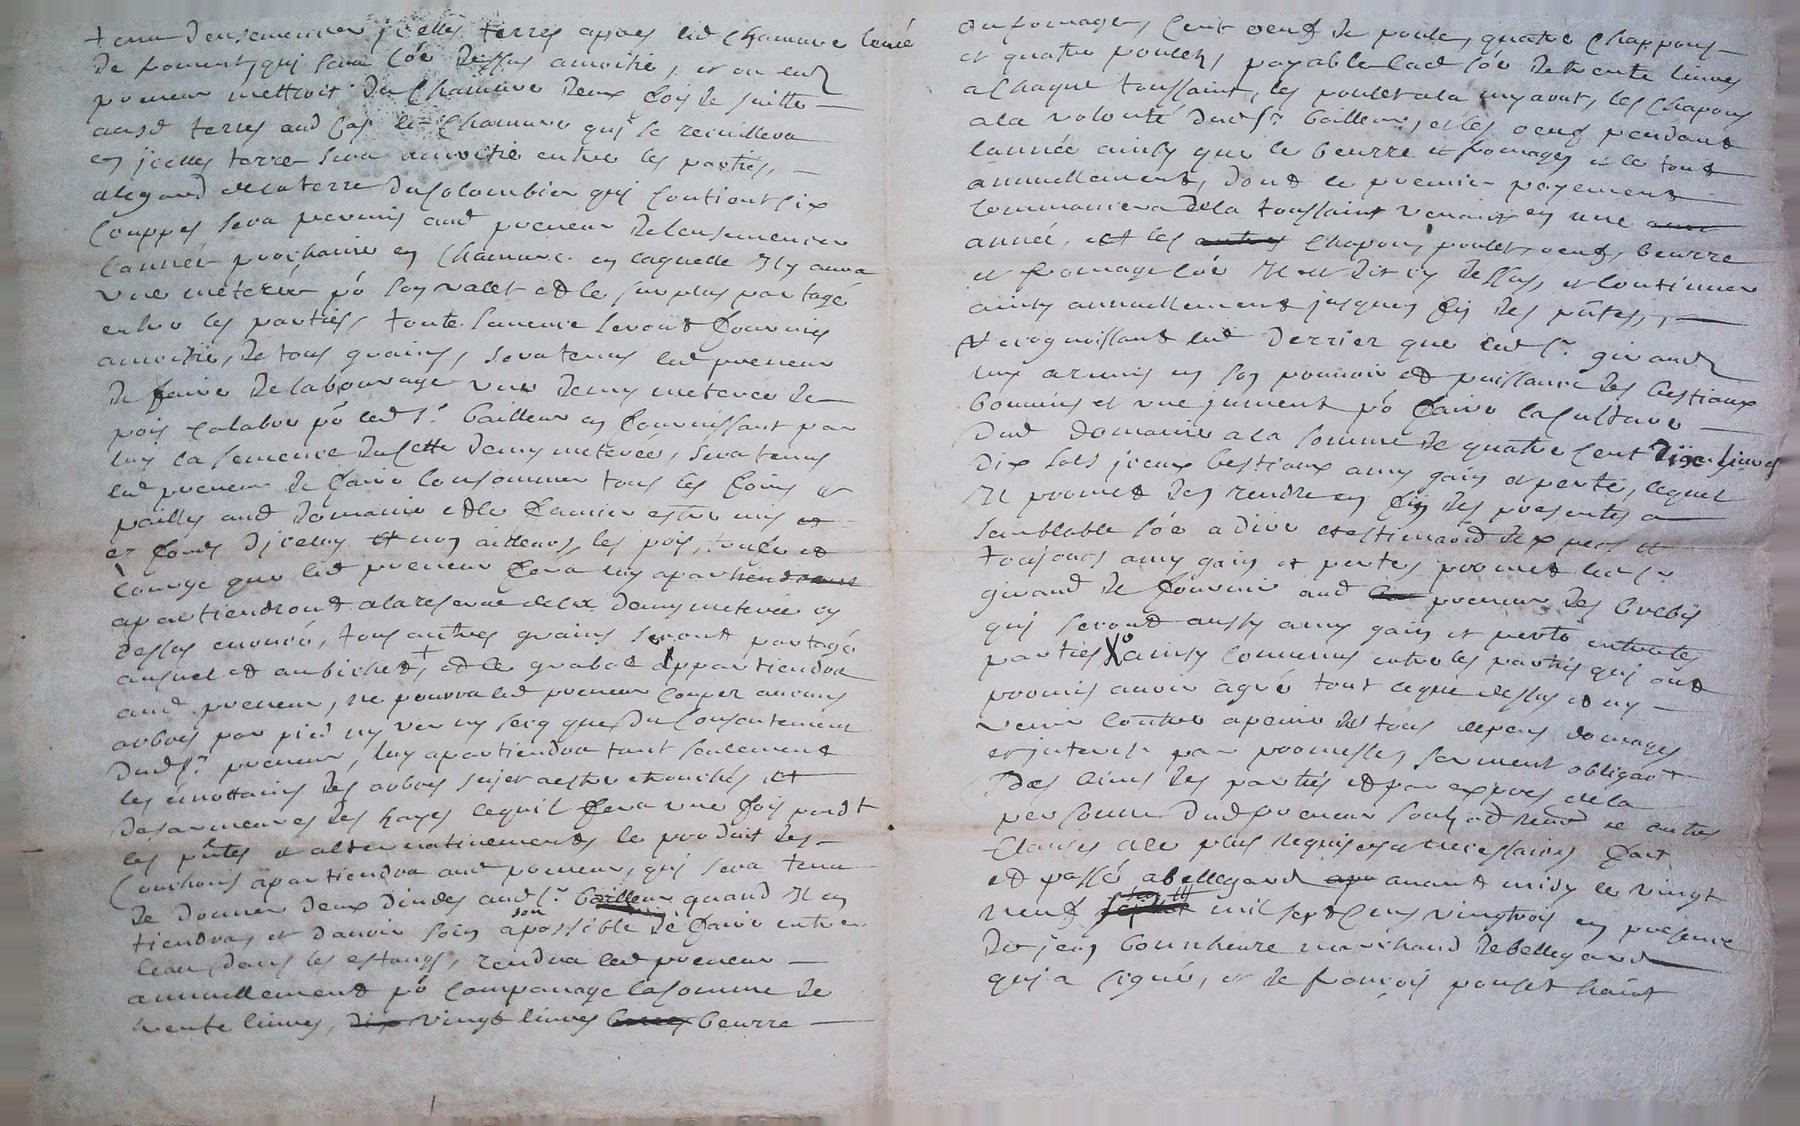 tenu d'ensemencer jcelles terres apres led chanvre levé
de froment, qui sera co͞e dessus amoitié, et ou led
preneur mettroit du chanvre deux fois de suitte
ausd terres aud cas le chanvre qui se recuillera
en jcelles terre sera amoitié entre les parties,
alegard de la terre du colombier qui contient six
couppes sera permis aud preneur de lensemencer
lannée prochaine en chanvre en laquelle Il y aura
une meterée po͞ son valet et le surplus partagé
entre les parties, toute semence seront fournies
amoitié, de tous grains, sera tenus led preneur
de faire de labourage une demy meterée de
pois calabre po͞ led sr. bailleur en fournissant par
luy la semence de cette demy meterée, sera tenus
led preneur de faire consommer tous les foins et
pailles aud domaine et le fumier estre mis
es fonds djceluy et non ailleurs, les pois,
courge que led preneur fera luy
apartiendront ala reserve de la demy meterée cy
dessus enoncé, tous autres grains seront partagé
et au bichet, et le appartiendra
aud preneur, ne pourra led preneur couper aucuns
arbres par pied ny ver ny secq que du consentement
dud sr. preneur, luy apartiendra tant seulement
les emottains des arbres sujet aestre ebrouchés et
des armeures des hayes lequil fera une fois pendt
les p͞ntes et alternativements le produit des
couchons apartiendra aud preneur, qui sera tenu
de donner deux dindes aud sr. bailleur quand Il en
tiendra, et davoir soin son possible de faire entrer
leau dans les estangs, rendra led preneur
annuellement po͞ companage la somme de
trente livres, dix vingt livres beurre
ou fromage, cent oeufs de poule, quatre chappons
et quatre poulets, payable lad so͞e de trente livres
a chaque toussaint, les poulet ala my aout, les chapons
ala volonté dud sr. bailleur, et les oeufs pendant
lannée ainsy que le beurre et fromages et le tout
annuellement, dont le premier payement
commancera de la toussaint venant en une
année, et les autres chapons, poulet, oeufs, beurre
et fromage co͞e Il est dit cy dessus, et continuer
ainsy annuellement jusques fin des p͞ntes,
Recognoissant led Derrier que led sr. giraud
luy a remis en son pouvoir et puissance des bestiaux
bouvins et une jument po͞ faire la culture
dud domaine a la somme de quatre cent dix livres
dix sols jceux bestiaux a my gain et perte, lequel
Il promet de rendre en fin des presentes a
semblable so͞e a dire et estimation dexpers et
toujours a my gain et pertes promet led sr.
giraud de fournir aud preneur des brebis
qui seront aussy a my gain et perte entre les
parties ainsy convenus entre les parties qui ont
promis avoir agré tout ce que dessus et ny
venir contre a peine de tous depens domages
et interest par promesses, serment obligaon
des biens des parties et par expres de la
personne dud preneur soub et renon et autres
clauses ale plus requises et necessaires fait
et passé a bellegard avant midy le vingt
neuf mil sept cens vingtrois en presence
de jean bonnheure marchand de bellegard
qui a signé, et de françois poncet